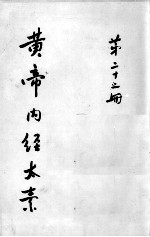 黄帝内经太素
第二十三册